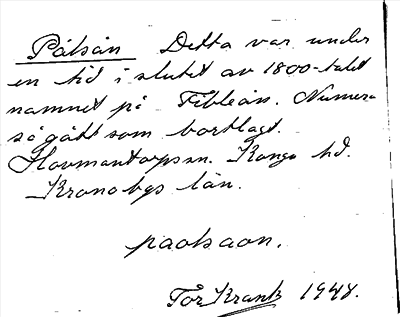 Pålsån Detta var under
en tid i slutet av 1800-talet
namnet på Fibleån. Numera
så gått som bortlagt.
Hovmantorps sn. Konga hd.
Kronobgs län.
paolsaon.
Tor Krantz 1948.